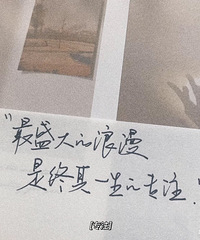 "最盛大的浪漫
是终其一生的专注."
[专注]